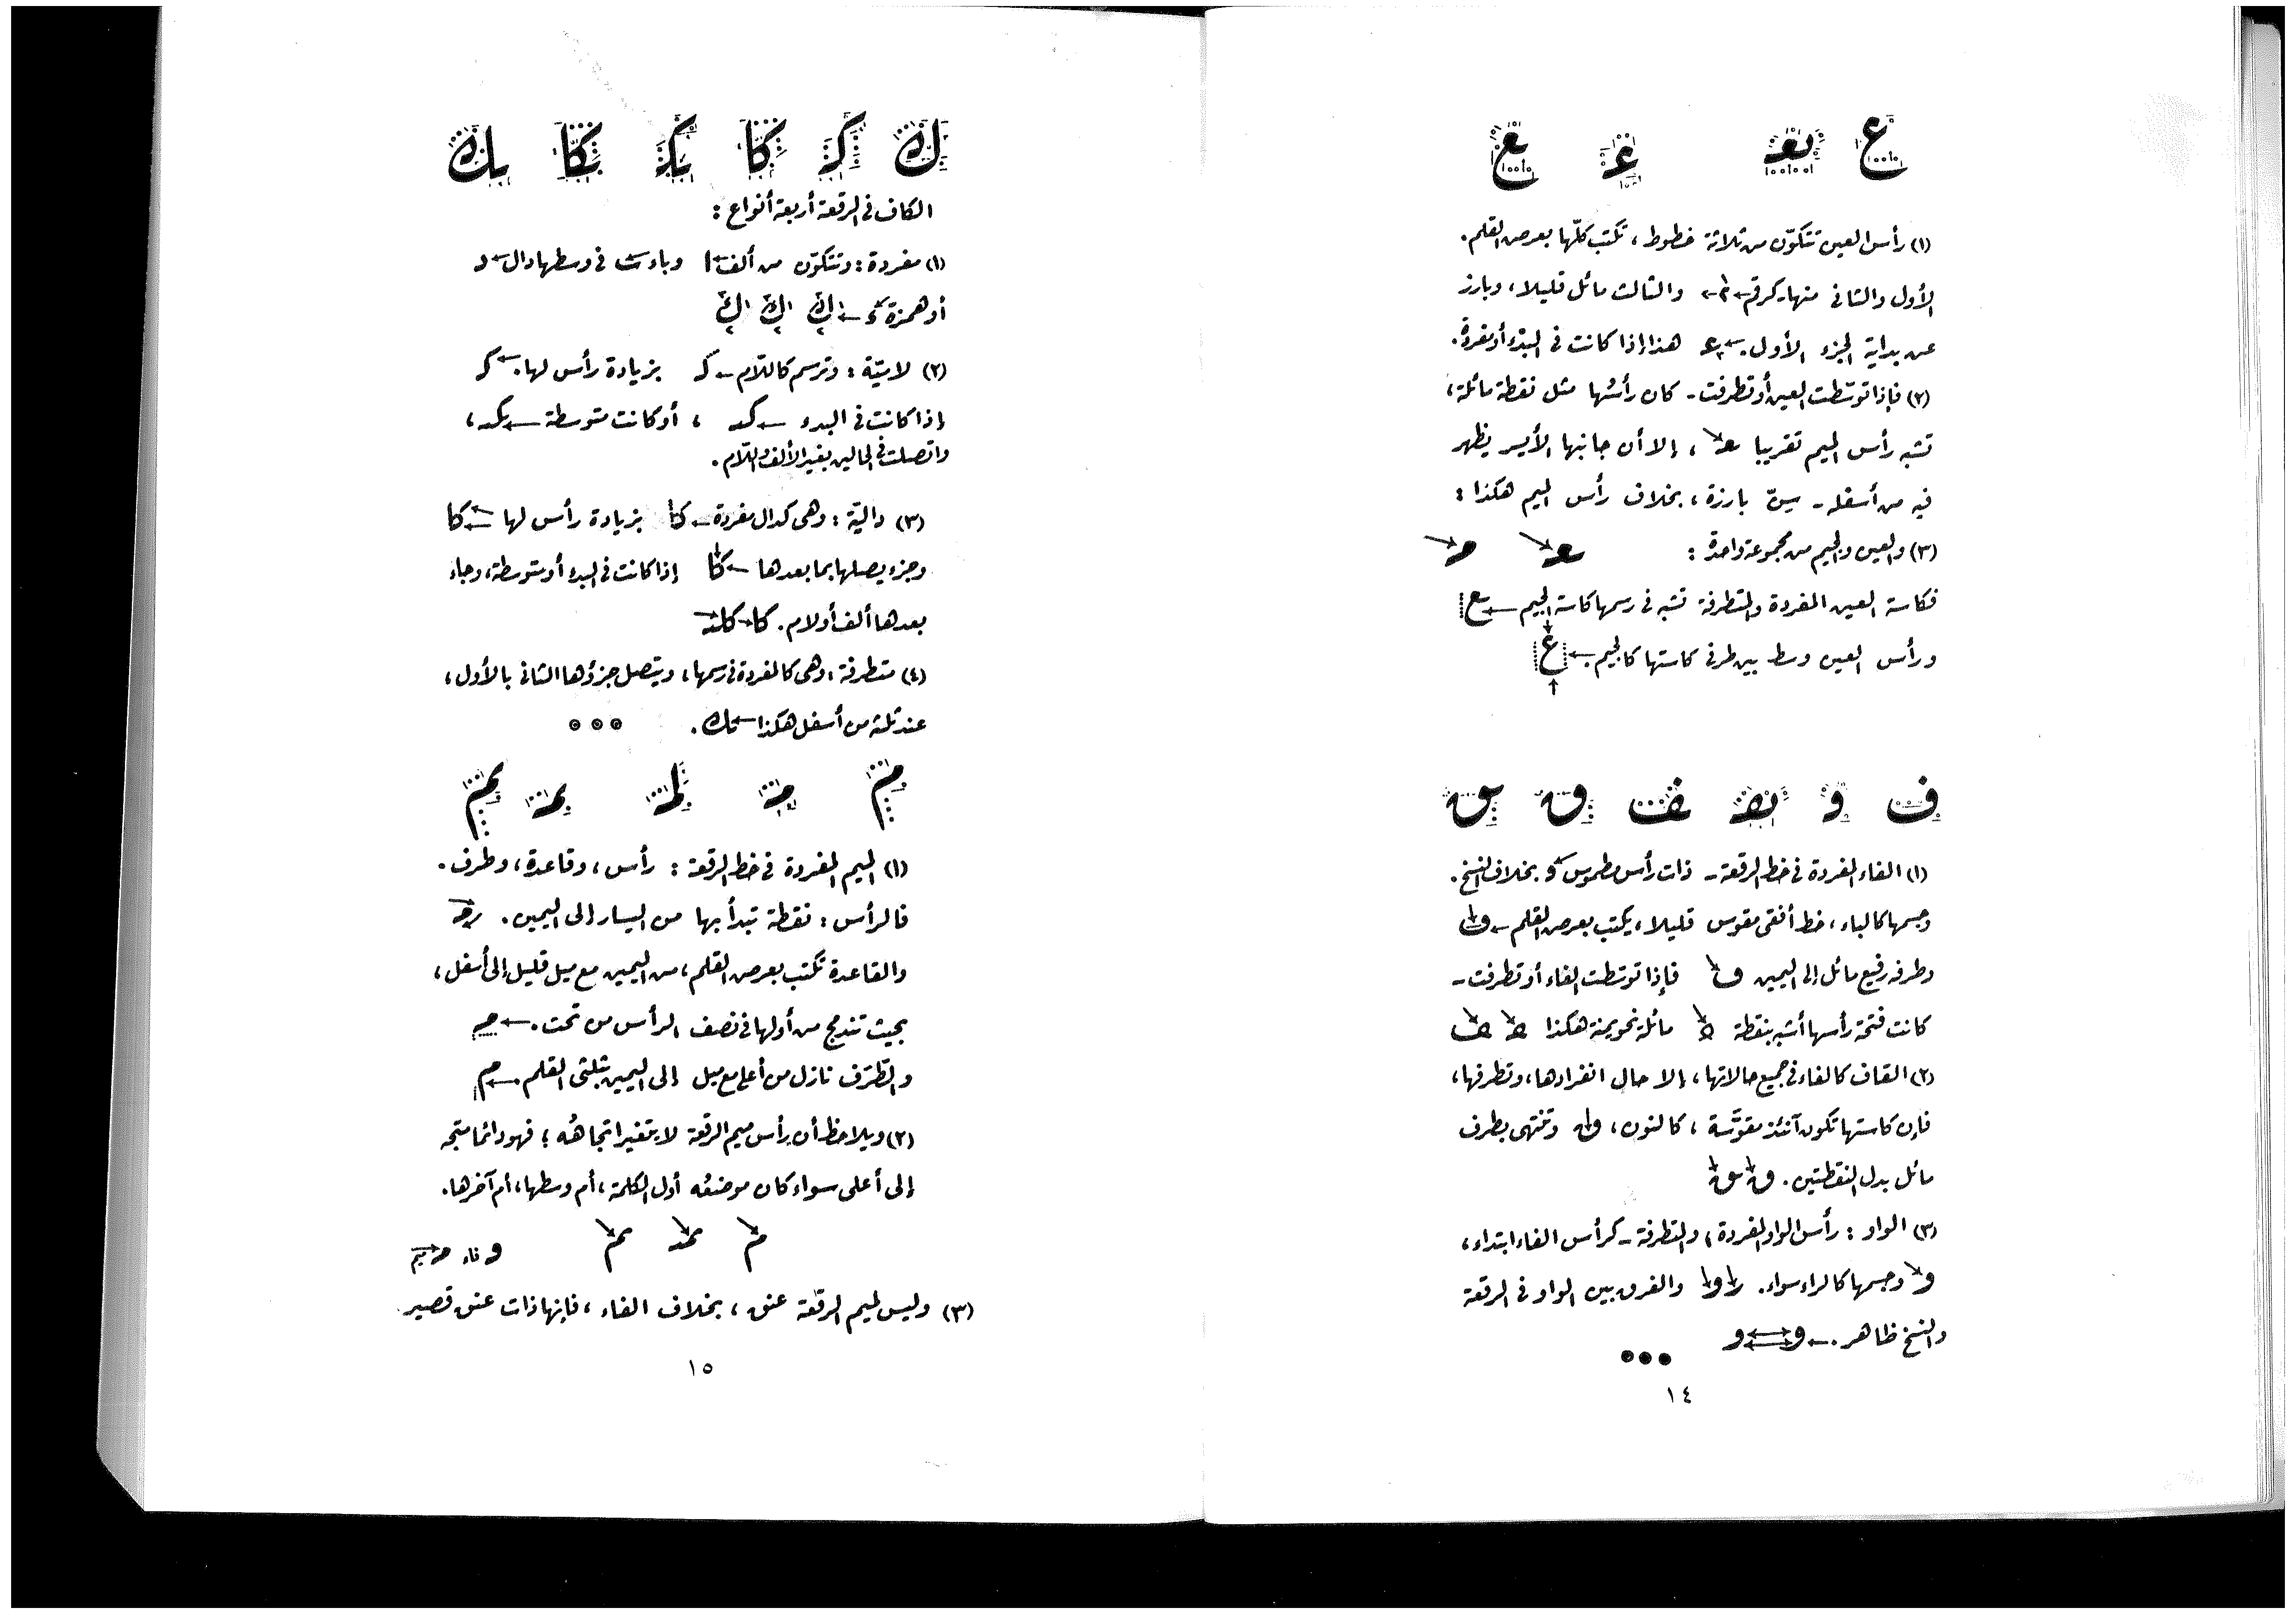 ع بعـ عـ ـع
(١) رأس العين تتكوّن من ثلاثة خطوط، تكتب كلّها بعرض القلم.
الأول والثاني منها كرقم ← ٢ ← والثالث مائل قليلا، وبارز
عن بداية الجزء الأول. ← عـ هذا إذا كانت في البدء أو مفردة.
(٢) فإذا توسّطت العين أو تطرفت - كان رأسُها مثل نقطة مائلة،
تشبه رأس الميم تقريبا ـعـ، إلا أن جانبها الأيسر يظهر
فيه من أسفله - سنّ بارزة، بخلاف رأس الميم هكذا:
(٣) والعين والجيم من مجموعة واحدة: ـعـ مـ
فكاسة العين المفردة والمتطرفة تشبه في رسمها كاسة الجيم ← ع
ورأس العين وسط بين طرفي كاستها كالجيم. ← ع
ف و ـفـ ـف ق ـق
(١) الفاء المفردة في خط الرقعة - ذات رأس مطموس و بخلاف النسخ.
وجسمها كالباء، خط أفقي مقوس قليلا، يكتب بعرض القلم ← ف
وطرفه رفيع مائل إلى اليمين ف فإذا توسّطت الفاء أو تطرفت -
كانت فتحة رأسها أشبه بنقطة مائلة نحو يمنة هكذا
(٢) القاف كالفاء في جميع حالاتها، إلا حال انفرادها، وتطرفها،
فإن كاستها تكون آنئذ مقوَّسة، كالنون، ق وتنتهي بطرف
مائل بدل النقطتين. ق ـق
(٣) الواو: رأس الواو المفردة، والمتطرفة - كرأس الفاء ابتداء،
و وجسمها كالراء سواء. ر و والفرق بين الواو في الرقعة
والنسخ ظاهر. ← و ⇄ و
١٤
ك كـ كا بكـ بكا بك
الكاف في الرقعة أربعة أنواع:
(١) مفردة: وتتكوّن من ألف ← ا وباء ← ـ في وسطها دال ← د
أو همزة ← ء ← ك ك ك
(٢) لاميّة: وترسم كاللّام ← لـ بزيادة رأس لها. ← كـ
إذا كانت في البدء ← كد ، أو كانت متوسطة ← ـكد ،
واتصلت في الحالين بغير الألف واللّام.
(٣) دالية: وهي كدال مفردة ← كا بزيادة رأس لها ← كا
وجزء يصلها بما بعدها ← كا إذا كانت في البدء أو متوسطة، وجاء
بعدها ألف أو لام. كا كلـ
(٤) متطرفة: وهي كالمفردة في رسمها، ويتصل جزؤها الثاني بالأول،
عند ثلثه من أسفل هكذا ← ـك.
م مـ لمـ ـمـ ـم
(١) الميم المفردة في خط الرقعة: رأس، وقاعدة، وطرف.
فالرأس: نقطة تبدأ بها من اليسار إلى اليمين.
والقاعدة تكتب بعرض القلم، من اليمين مع ميل قليل إلى أسفل،
بحيث تندمج من أولها في نصف الرأس من تحت. ← مـ
والطّرَف نازل من أعلى مع ميل إلى اليمين بثلثي القلم. ← م
(٢) ويلاحظ أن رأس ميم الرقعة لا يتغير اتجاهُه؛ فهو دائما متجه
إلى أعلى سواء كان موضعُه أول الكلمة، أم وسطها، أم آخرها.
م ـمـ ـم و فاء مـ ميم
(٣) وليس لميم الرقعة عنق، بخلاف الفاء، فإنها ذات عنق قصير.
١٥